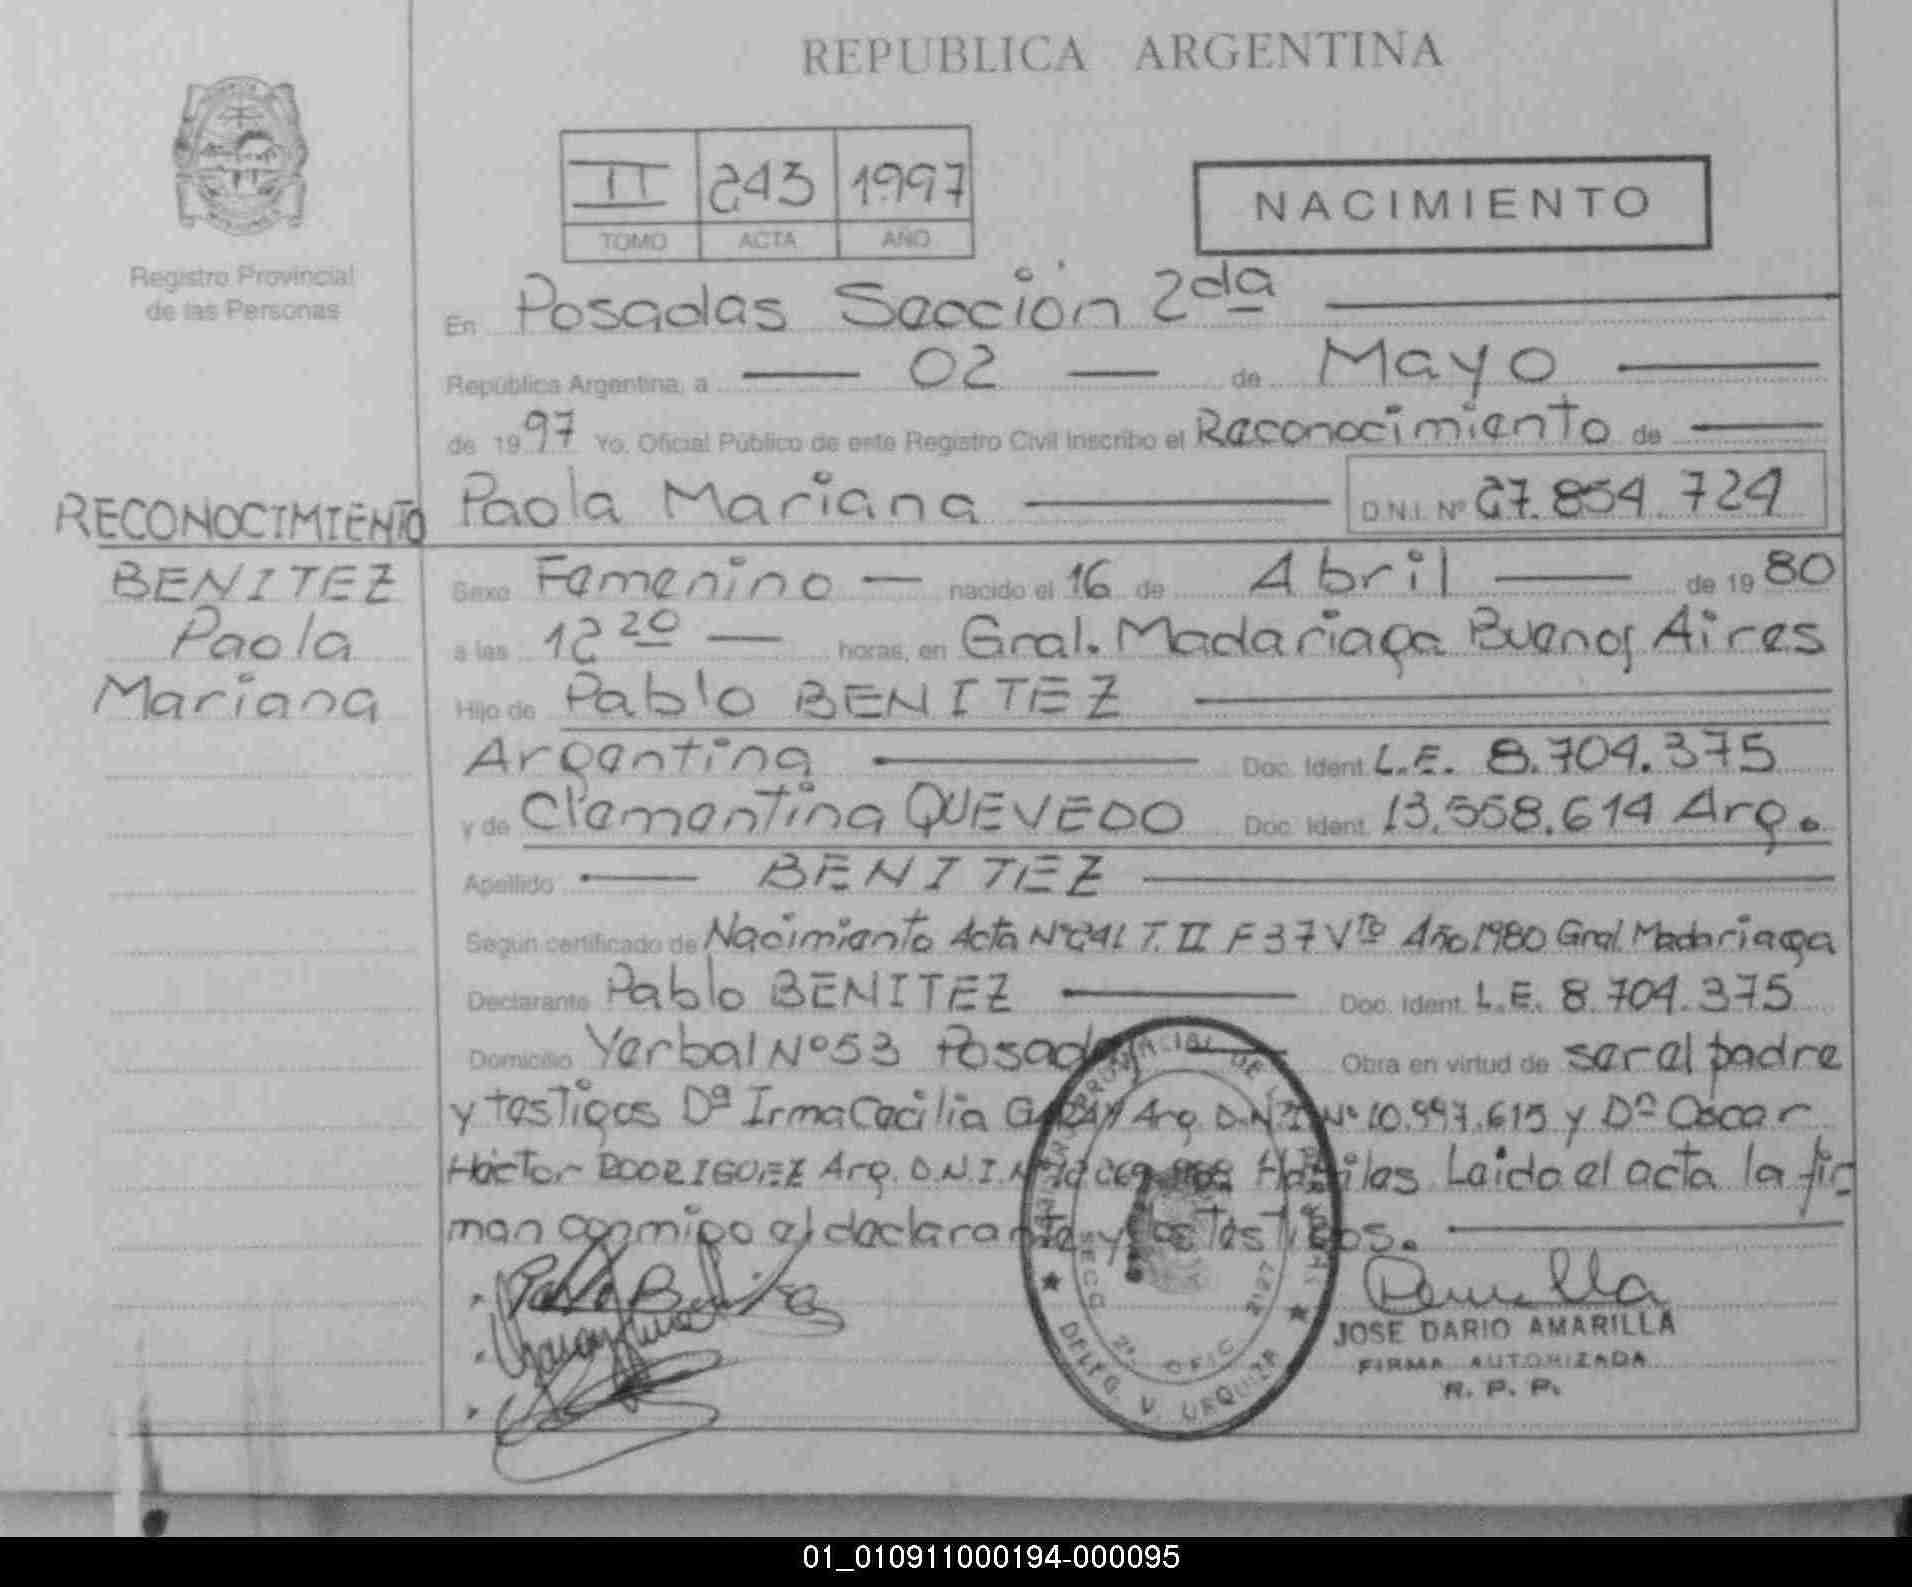 REPUBLICA ARGENTINA
II 243 1997
TOMO ACTA AÑO
NACIMIENTO
Registro Provincial
de las Personas
En Posadas Sección 2da
República Argentina, a 02 de Mayo
de 1997 Yo, Oficial Público de este Registro Civil inscribo el Reconocimiento de
Paola Mariana D.N.I. Nº 27.854.724
RECONOCIMIENTO
BENITEZ
Paola
Mariana
Sexo Femenino nacido el 16 de Abril de 1980
a las 12 20 horas, en Gral. Madariaga Buenos Aires
Hijo de Pablo BENITEZ
Argentina Doc. Ident. L.E. 8.704.375
y de Clementina QUEVEDO Doc. Ident. 13.558.614 Arg.
Apellido BENITEZ
Según certificado de Nacimiento Acta Nº 241 T. II F 37 Vto Año 1980 Gral. Madariaga
Declarante Pablo BENITEZ Doc. Ident. L.E. 8.704.375
Domicilio Yerbal Nº 53 Posadas Obra en virtud de ser el padre
y testigos Dª Irma Cecilia Arg D.N.I. Nº 10.997.615 y Dn Oscar
Héctor RODRIGUEZ Arg. D.N.I. Hábiles Leido el acta la fir
man conmigo el declarante y los testigos.
Pablo Benitez
SECC 2ª OFIC 2127
DELEG. V. URQUIZA
JOSE DARIO AMARILLA
FIRMA AUTORIZADA
R. P. P.
01_010911000194-000095